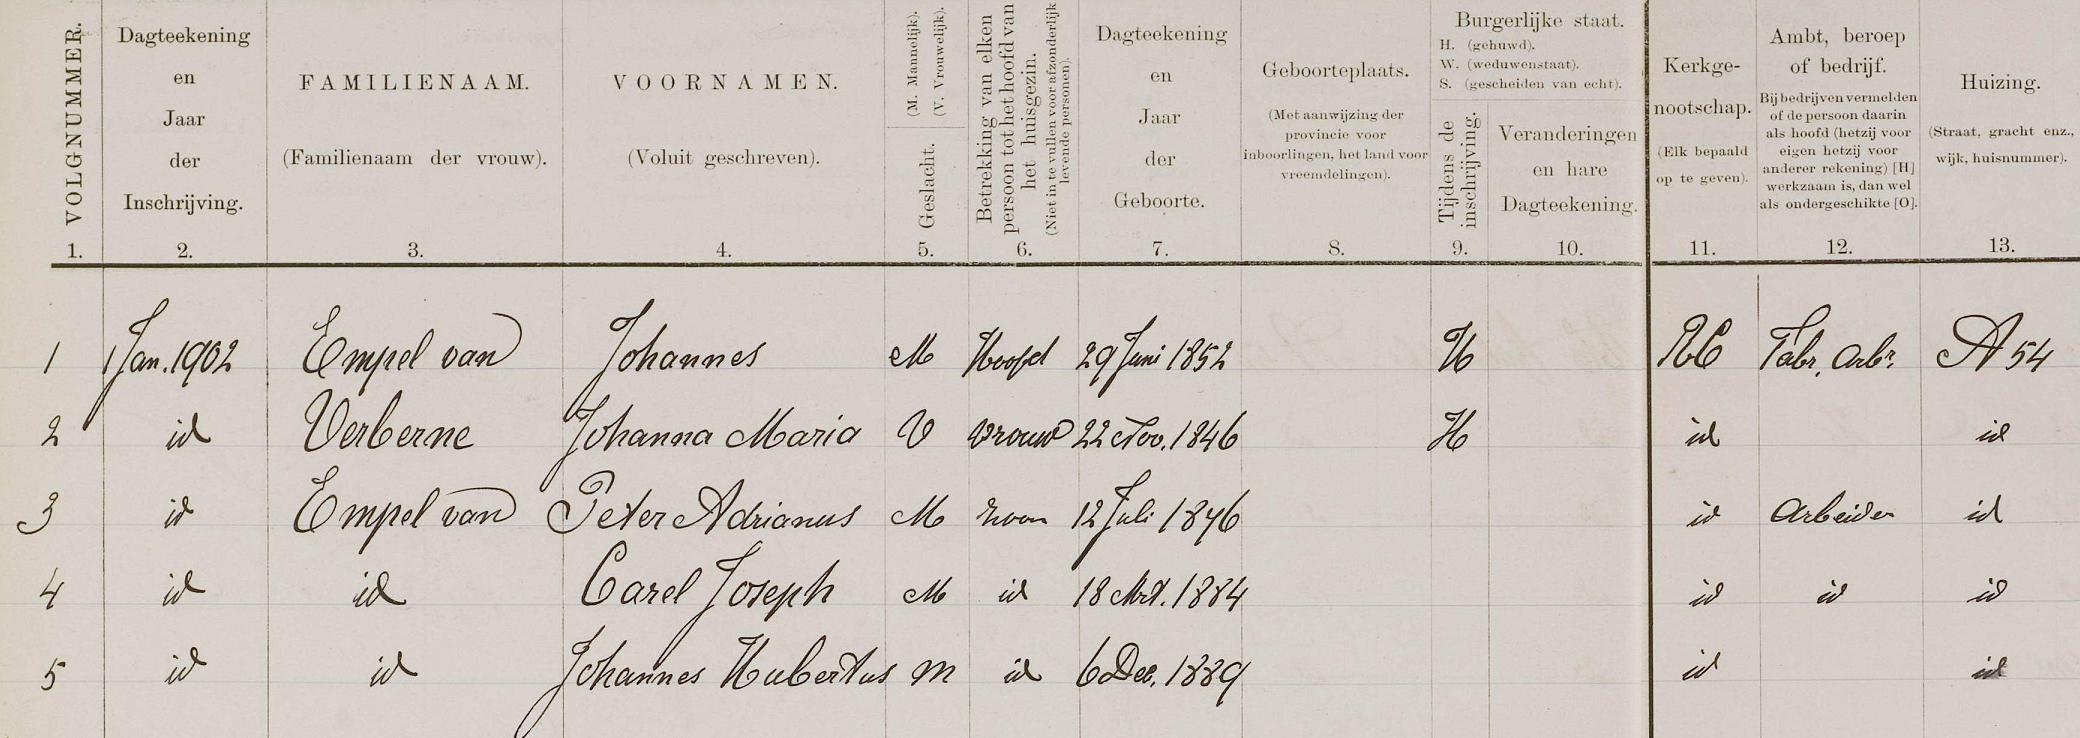 VOLGNUMMER. 1.
Dagteekening
en
Jaar
der
Inschrijving.
2.
FAMILIENAAM.
(Familienaam der vrouw).
3.
VOORNAMEN.
(Voluit geschreven).
4.
Geslacht.
(M. Mannelijk).
(V. Vrouwelijk).
5.
Betrekking van elken
persoon tot het hoofd van
het huisgezin.
(Niet in te vullen voor afzonderlijk
levende personen).
6.
Dagteekening
en
Jaar
der
Geboorte.
7.
Geboorteplaats.
(Met aanwijzing der
provincie voor
inboorlingen, het land voor
vreemdelingen).
8.
Burgerlijke staat.
H. (gehuwd).
W. (weduwenstaat).
S. (gescheiden van echt).
Tijdens de
inschrijving.
9.
Veranderingen
en hare
Dagteekening.
10.
Kerkge-
nootschap.
(Elk bepaald
op te geven).
11.
Ambt, beroep
of bedrijf.
Bij bedrijven vermelden
of de persoon daarin
als hoofd (hetzij voor
eigen hetzij voor
anderer rekening) [H]
werkzaam is, dan wel
als ondergeschikte [O].
12.
Huizing.
(Straat, gracht enz.,
wijk, huisnummer).
13.
1 1 Jan. 1902 Empel van Johannes M Hoofd 29 Juni 1852 H RC Fabr. arbr. A 54
2 id Verberne Johanna Maria V vrouw 22 Nov. 1846 H id id
3 id Empel van Peter Adrianus M zoon 12 Juli 1876 id arbeider id
4 id id Carel Joseph M id 18 Mrt. 1884 id id id
5 id id Johannes Hubertus M id 6 Dec. 1889 id id